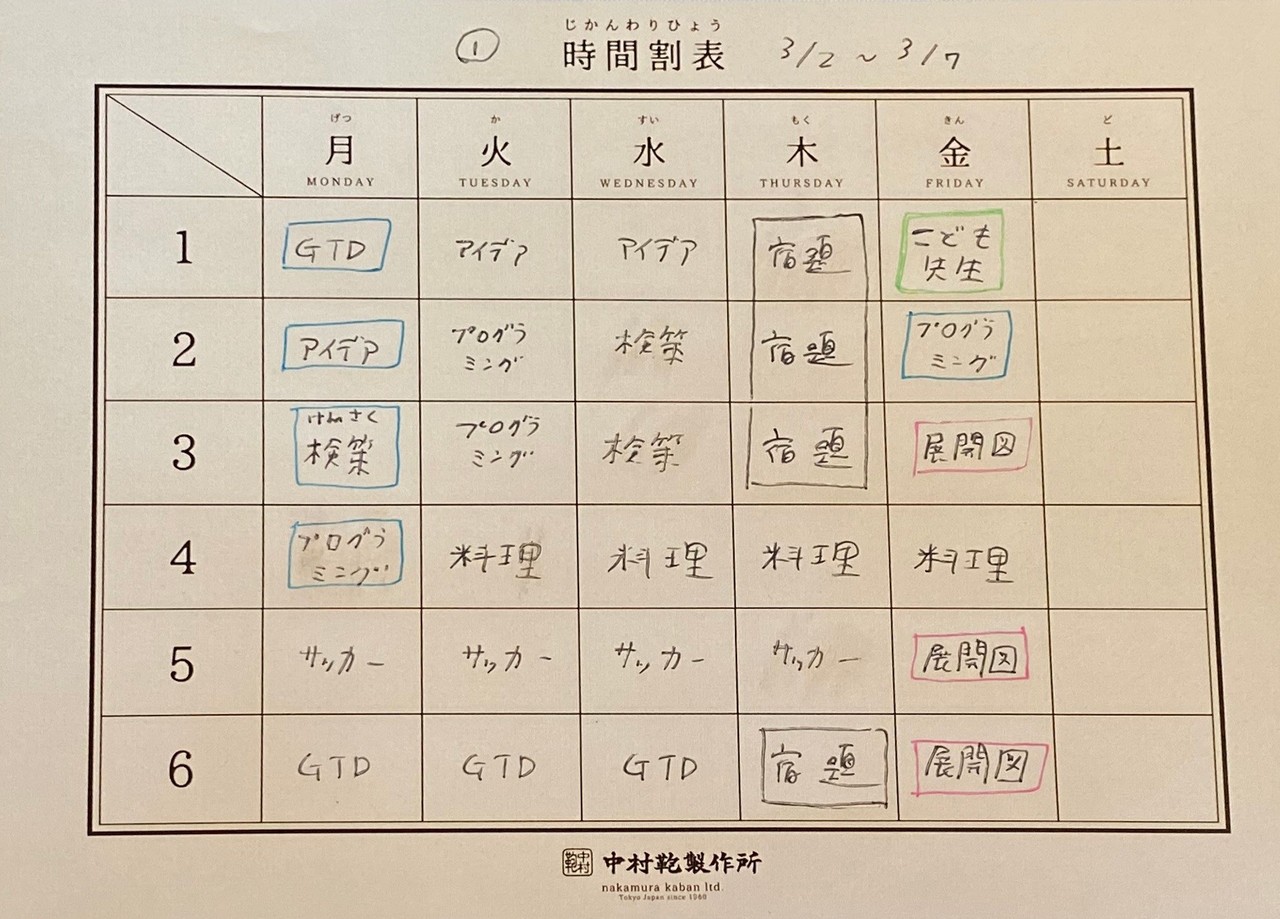 じかんわりひょう
① 時間割表 3/2 ~ 3/7
げつ か すい もく きん ど
月 火 水 木 金 土
MONDAY TUESDAY WEDNESDAY THURSDAY FRIDAY SATURDAY
1 GTD アイデア アイデア 宿題 こども
先生
2 アイデア プログラ
ミング 検策 宿題 プログラ
ミング
3 けんさく
検策 プログラ
ミング 検策 宿題 展開図
4 プログラ
ミング 料理 料理 料理 料理
5 サッカー サッカー サッカー サッカー 展開図
6 GTD GTD GTD 宿題 展開図
中村鞄 中村鞄製作所
nakamura kaban ltd.
Tokyo Japan since 1960